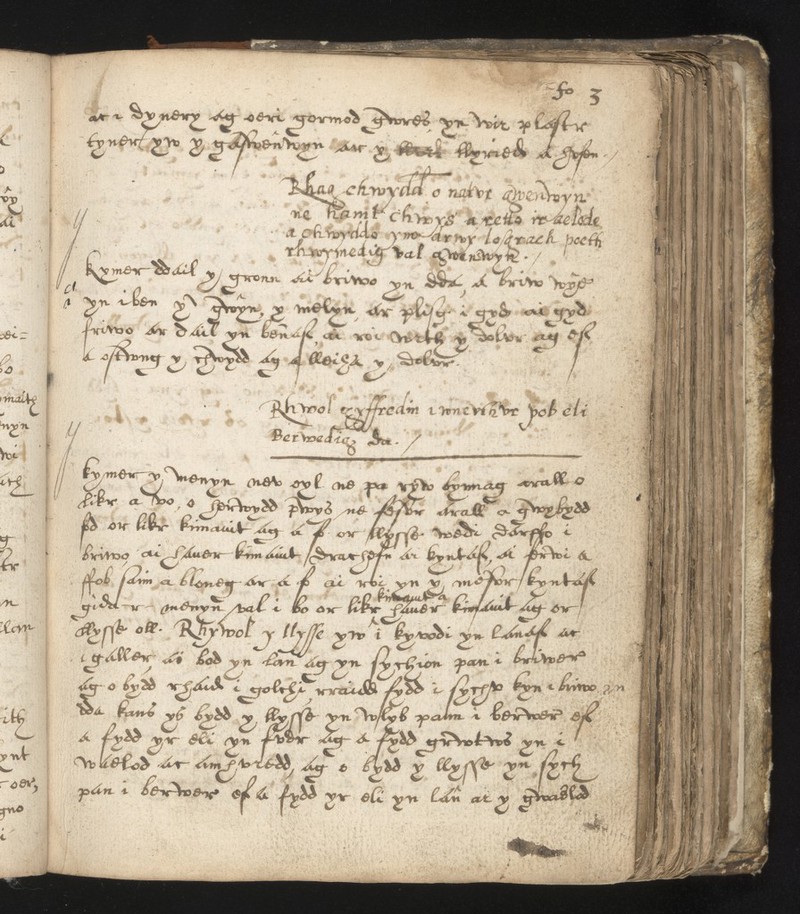 fo 3
ac i dynery ag oeri gormod gwres yn wir plastr
tyner yw y gaswenwyn ar y llyriedd a
Rhag chwydd o natvr gwenwyn
ne haint chwys a retto ir aelode
a chwyddo ynn arwy losgrach poeth
rhwymedig val gwenwyn.
Kymer ddail y gronn ai briwo yn dda, a briw wye
yn i ben y gwyn, y melyn, ar plisg i gyd ai gyd
friwo ar dail yn benaf ai roi wrth y dolvr ag ef
a ostwng y chwydd ag a lleiha y dolvr.
Rhwol gyffredin i wnevthvr pob eli
Berwedig da.
kymer y menyn nev oyl ne pa ryw bynnag arall o
likr a vo, o herwydd pwys ne fesvr arall a gwybydd
or likr kimaint ag a fo or llysse wedi darffo i
briwo ai haner kimaint drachefn ar kyntaf, ai ferwi a
ffob saim a bloneg ar a fo ai roi yn y mesvr kyntaf
kimaint a
gida r menyn val i bo or likr haner kimaint ag or
llysse oll. Rhywol y llysse yw i kywodi yn lanaf ac
i galler ai bod yn lan ag yn sychion pan i briwer
ag o bydd rhaid i golchi rraidd fydd i sychv kyn i briwo yn
dda kans os bydd y llysse yn wlyb pann i berwer ef
a fydd yr eli yn fvdr ag a fydd grwtws yn i
waelod ac amhvredd, ag o bydd y llysse yn sych
pan i berwer ef a fydd yr eli yn lan ar y gwaelod